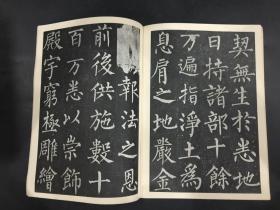 契無生於悉地
日持諸部十餘
万遍指淨土為
息肩之地嚴金
報法之恩
前後供施數十
百万悉以崇飾
殿宇窮極雕繪